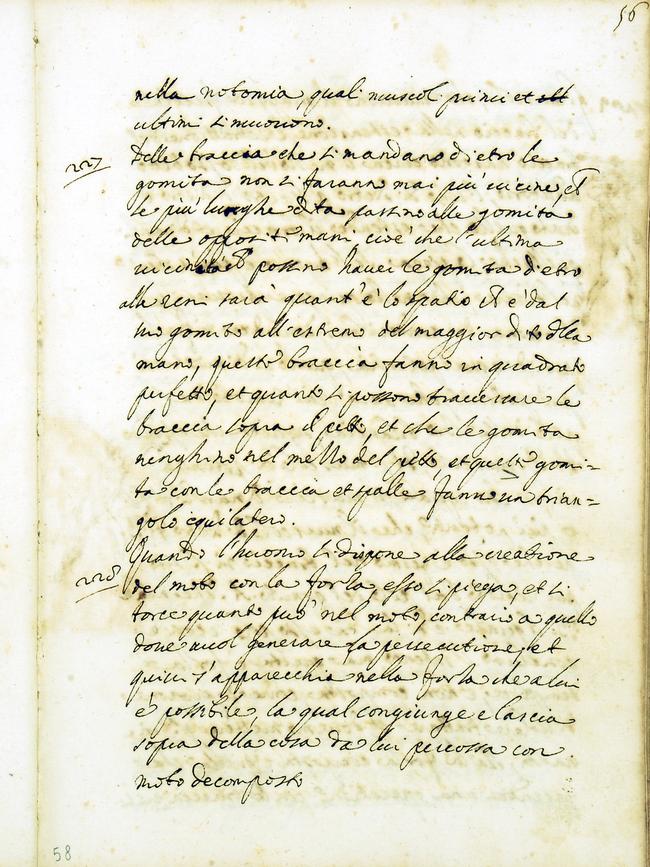 56
nella notomia, quali muscoli primi et
ultimi si muovono.
227
Delle braccia che si mandano dietro le
gomita non si faranno mai più vicine, che
le più lunghe dita passino alle gomita
delle opposite mani, cioè che l'ultima
vicinità che possino haver le gomita dietro
alle reni sarà quant'è lo spatio ch'è dal
suo gomito all'estremo del maggior dito della
mano, queste braccia fanno un quadrato
perfetto, et quanto si possono traversare le
braccia sopra il petto, et che le gomita
venghino nel mezzo del petto, et queste gomi=
ta con le braccia et spalle fanno un trian=
golo equilatero.
228
Quando l'huomo si dispone alla creatione
del moto con la forza, esso si piega, et si
torce quanto può nel moto, contrario a quello
dove vuol generare la percussione, et
quivi s'apparecchia nella forza che a lui
è possibile, la qual congiunge e lascia
sopra della cosa da lui percossa con
moto decomposto
58